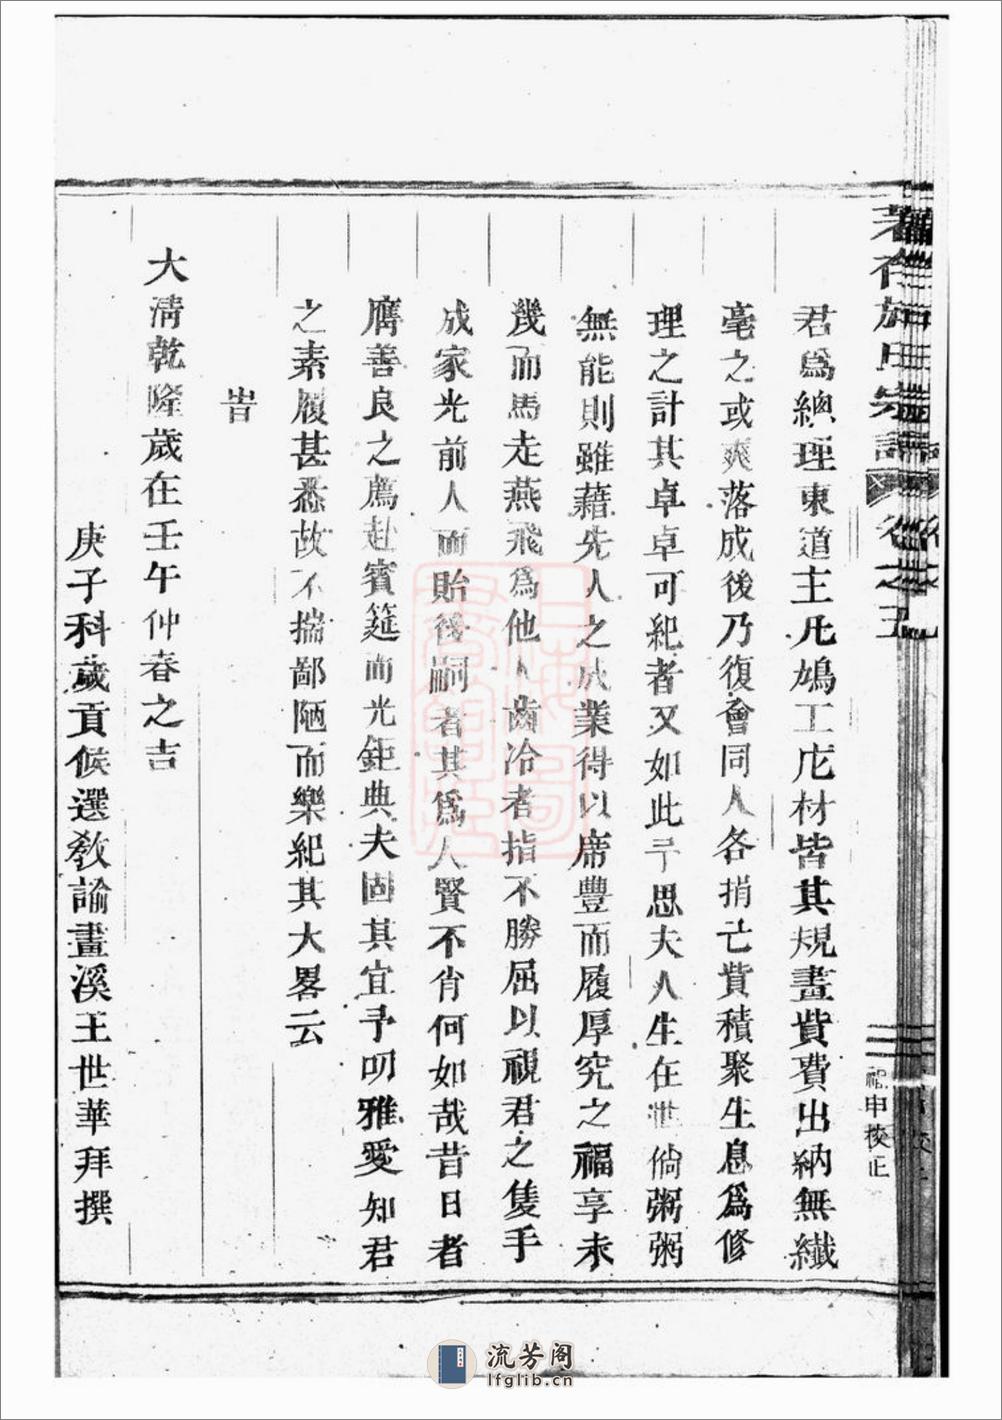 著存施氏宗譜 卷之五
福申校正
君爲總理東道主凡鳩工庀材皆其規畫費費出納無纖
毫之或爽落成後乃復會同人各捐亡貲積聚生息爲修
理之計其卓卓可紀者又如此予思夫人生在世倘粥粥
無能則雖藉先人之成業得以席豐而履厚究之福享未
幾而馬走燕飛爲他人齒冷者指不勝屈以視君之隻手
成家光前人而貽後嗣者其爲人賢不肖何如哉昔日者
膺善良之薦赴賓筵而光鉅典夫固其宜予叨雅愛知君
之素履甚悉故不揣鄙陋而樂紀其大畧云
旹
大清乾隆歲在壬午仲春之吉
庚子科歲貢候選教諭畫溪王世華拜撰
上海圖書館藏
流芳阁
lfglib.cn